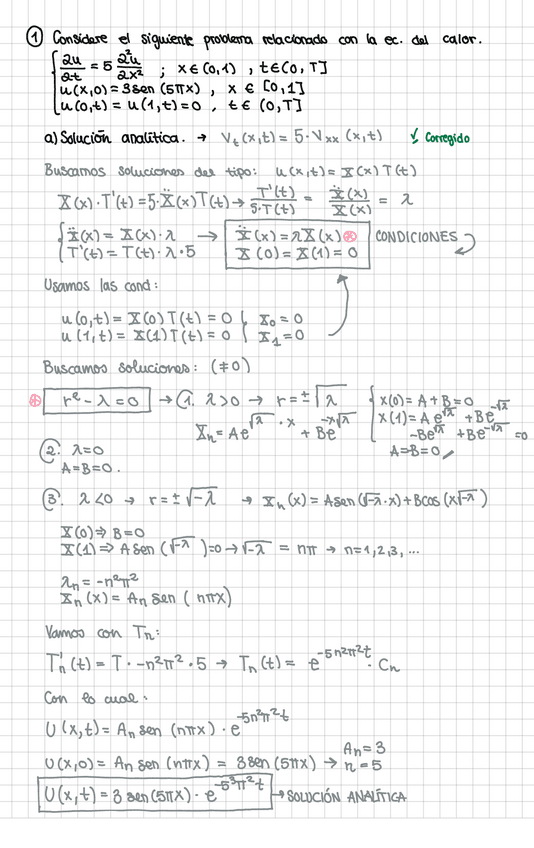 ① Considere el siguiente problema relacionado con la ec. del calor.
∂u/∂t = 5 ∂²u/∂x² ; x ∈ (0,1) , t ∈ (0,T]
u(x,0) = 3sen (5πx) , x ∈ [0,1]
u(0,t) = u(1,t) = 0 , t ∈ (0,T]
a) Solución analítica. → V_t(x,t) = 5·V_xx (x,t) ✓ Corregido
Buscamos soluciones del tipo: u(x,t) = X(x) T(t)
X(x)·T'(t) = 5·Ẍ(x)T(t) → T'(t)/5·T(t) = Ẍ(x)/X(x) = λ
Ẍ(x) = X(x)·λ → Ẍ(x) = λX(x) ⊛ CONDICIONES
T'(t) = T(t)·λ·5 X(0) = X(1) = 0
Usamos las cond:
u(0,t) = X(0)T(t) = 0 } X₀ = 0
u(1,t) = X(1)T(t) = 0 } X₁ = 0
Buscamos soluciones: (≠0)
⊛ r² - λ = 0 → 1. λ>0 → r = ±√λ { X(0) = A + B = 0
X_n = Ae^(√λ · x) + Be^(-x√λ) X(1) = A e^(√λ) + Be^(-√λ)
-Be^(√λ) + Be^(-√λ) = 0
2. λ=0 A=B=0
A=B=0.
3. λ<0 → r = ±√-λ → X_n(x) = Asen(√-λ·x) + Bcos(x√-λ)
X(0) ⇒ B=0
X(1) ⇒ A sen (√-λ) = 0 → √-λ = nπ → n=1,2,3,...
λ_n = -n²π²
X_n(x) = A_n sen ( nπx)
Vamos con T_n:
T'_n(t) = T · -n²π² · 5 → T_n(t) = e^(-5n²π²t) · C_n
Con lo cual:
U(x,t) = A_n sen (nπx) · e^(-5n²π²t)
U(x,0) = A_n sen (nπx) = 3sen (5πx) → A_n = 3
n = 5
U(x,t) = 3 sen(5πx) · e^(-5³π²t) → SOLUCIÓN ANALÍTICA